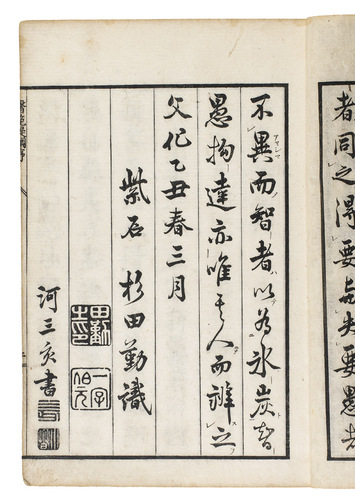 者同之得要與失要愚者
不異而智者以為氷炭智
愚拘達亦唯其人而雖云
文化乙丑春三月
紫石杉田勤識
河三亥書